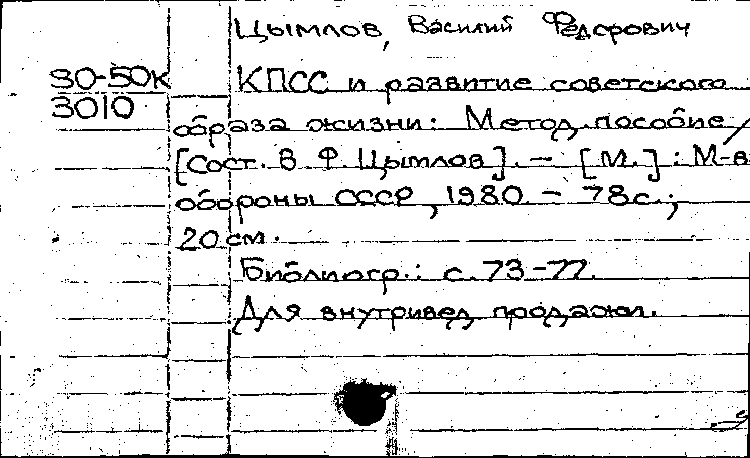 Цымлов, Василий Федорович
80-50к КПСС и развитие советского
3010
образа жизни: Метод. пособие /
[Сост. В. Ф. Цымлов]. - [М.] : М-в
обороны СССР, 1980. - 78с.;
20 см.
Библиогр.: с. 73-77.
Для внутривед. продажи.